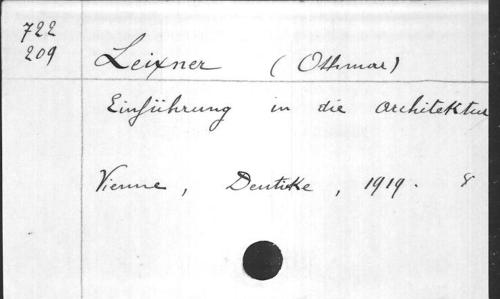 722
209
Leixner (Othmar)
Einführung in die Architektur
Vienne, Deuticke, 1919. 8